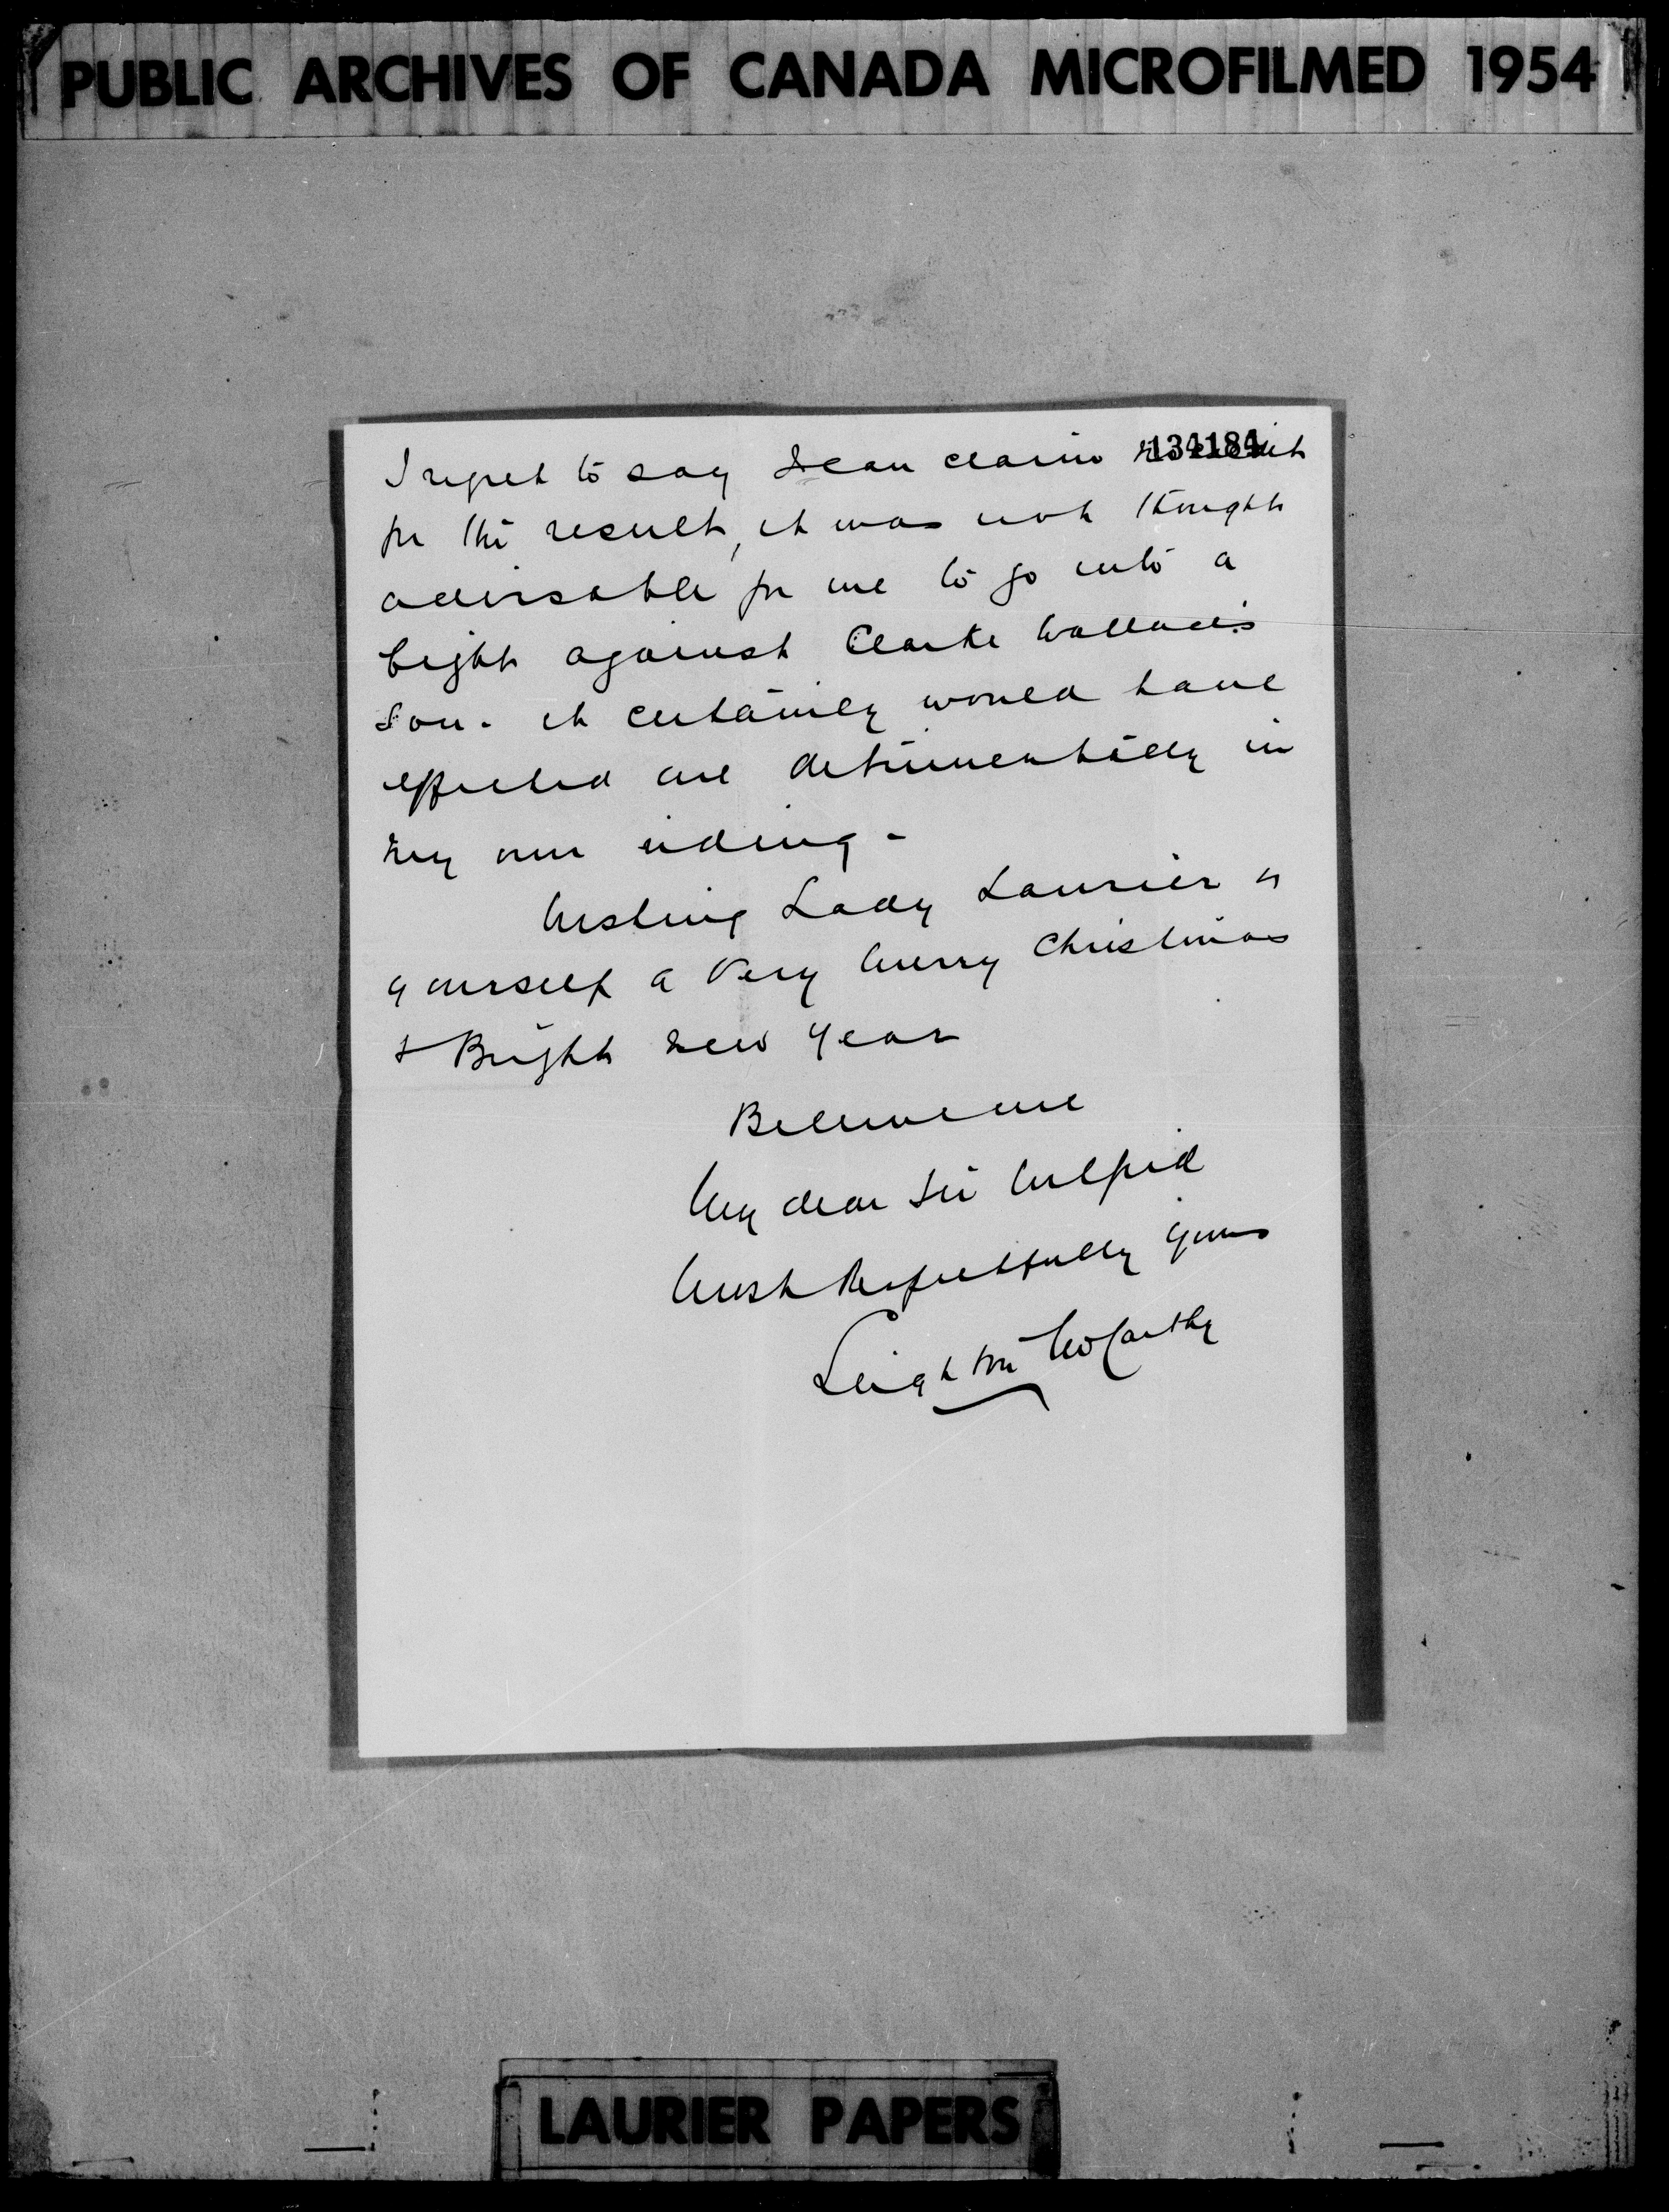 PUBLIC ARCHIVES OF CANADA MICROFILMED 1954
134184
I regret to say I can claim no credit
for the result, it was not thought
advisable for me to go into a
fight against Clarke Wallace's
son - it certainly would have
effected me detrimentally in
my own riding -
Wishing Lady Laurier &
yourself a Very Merry Christmas
& Bright New Year
Believe me
My dear Sir Wilfrid
Most Respectfully yours
Leighton McCarthy
LAURIER PAPERS